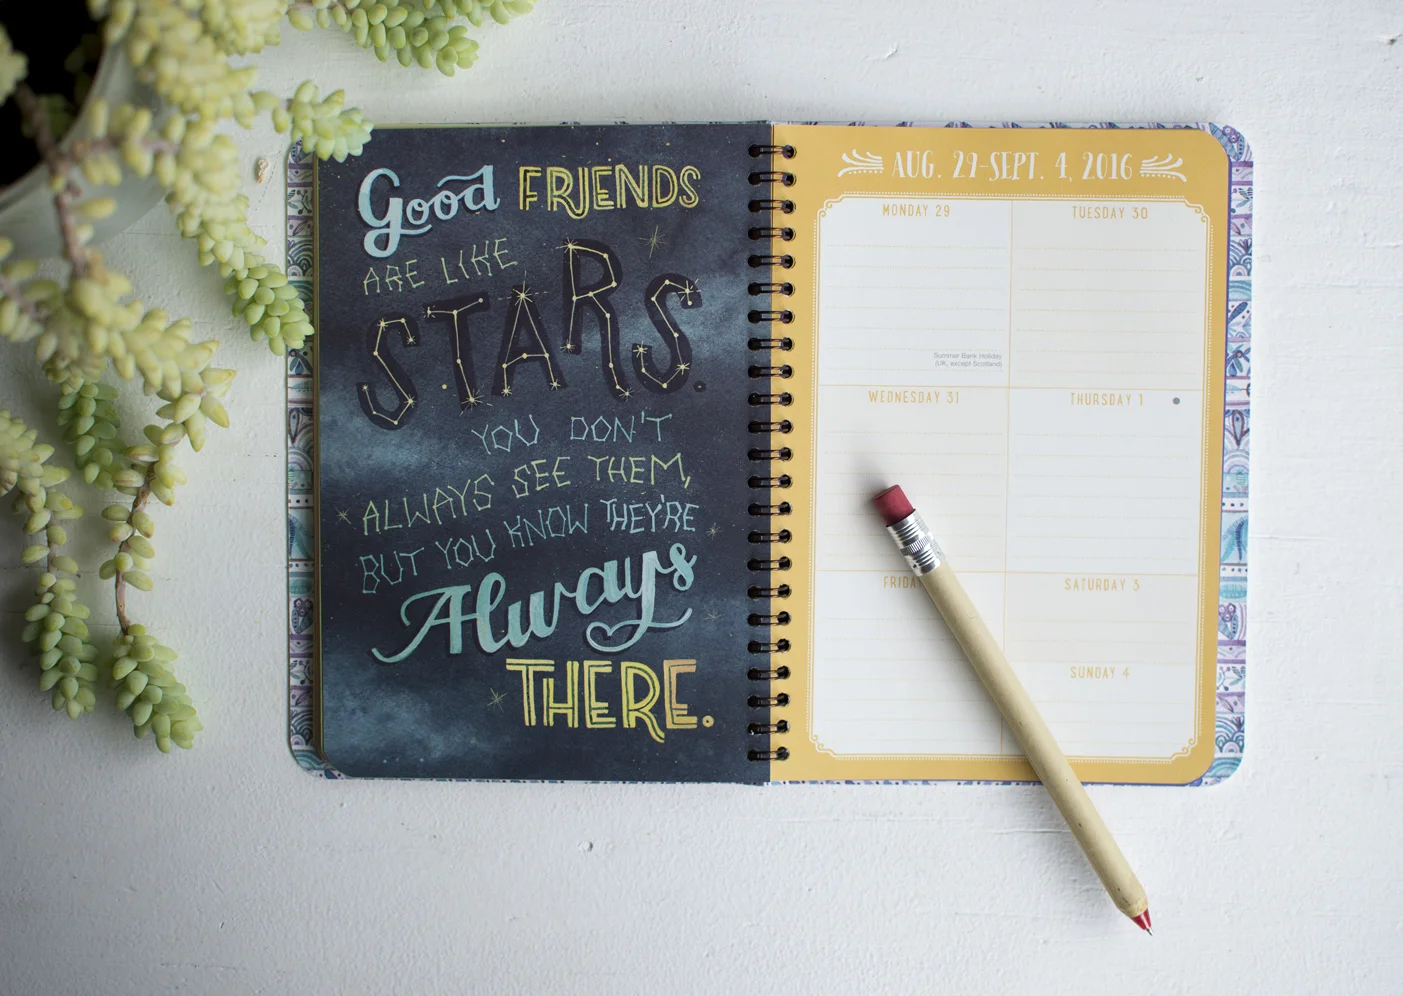 Good FRIENDS
ARE LIKE
STARS.
YOU DON'T
ALWAYS SEE THEM,
BUT YOU KNOW THEY'RE
Always
THERE.
AUG. 29-SEPT. 4, 2016
MONDAY 29
TUESDAY 30
Summer Bank Holiday
(UK, except Scotland)
WEDNESDAY 31
THURSDAY 1
FRIDAY
SATURDAY 3
SUNDAY 4